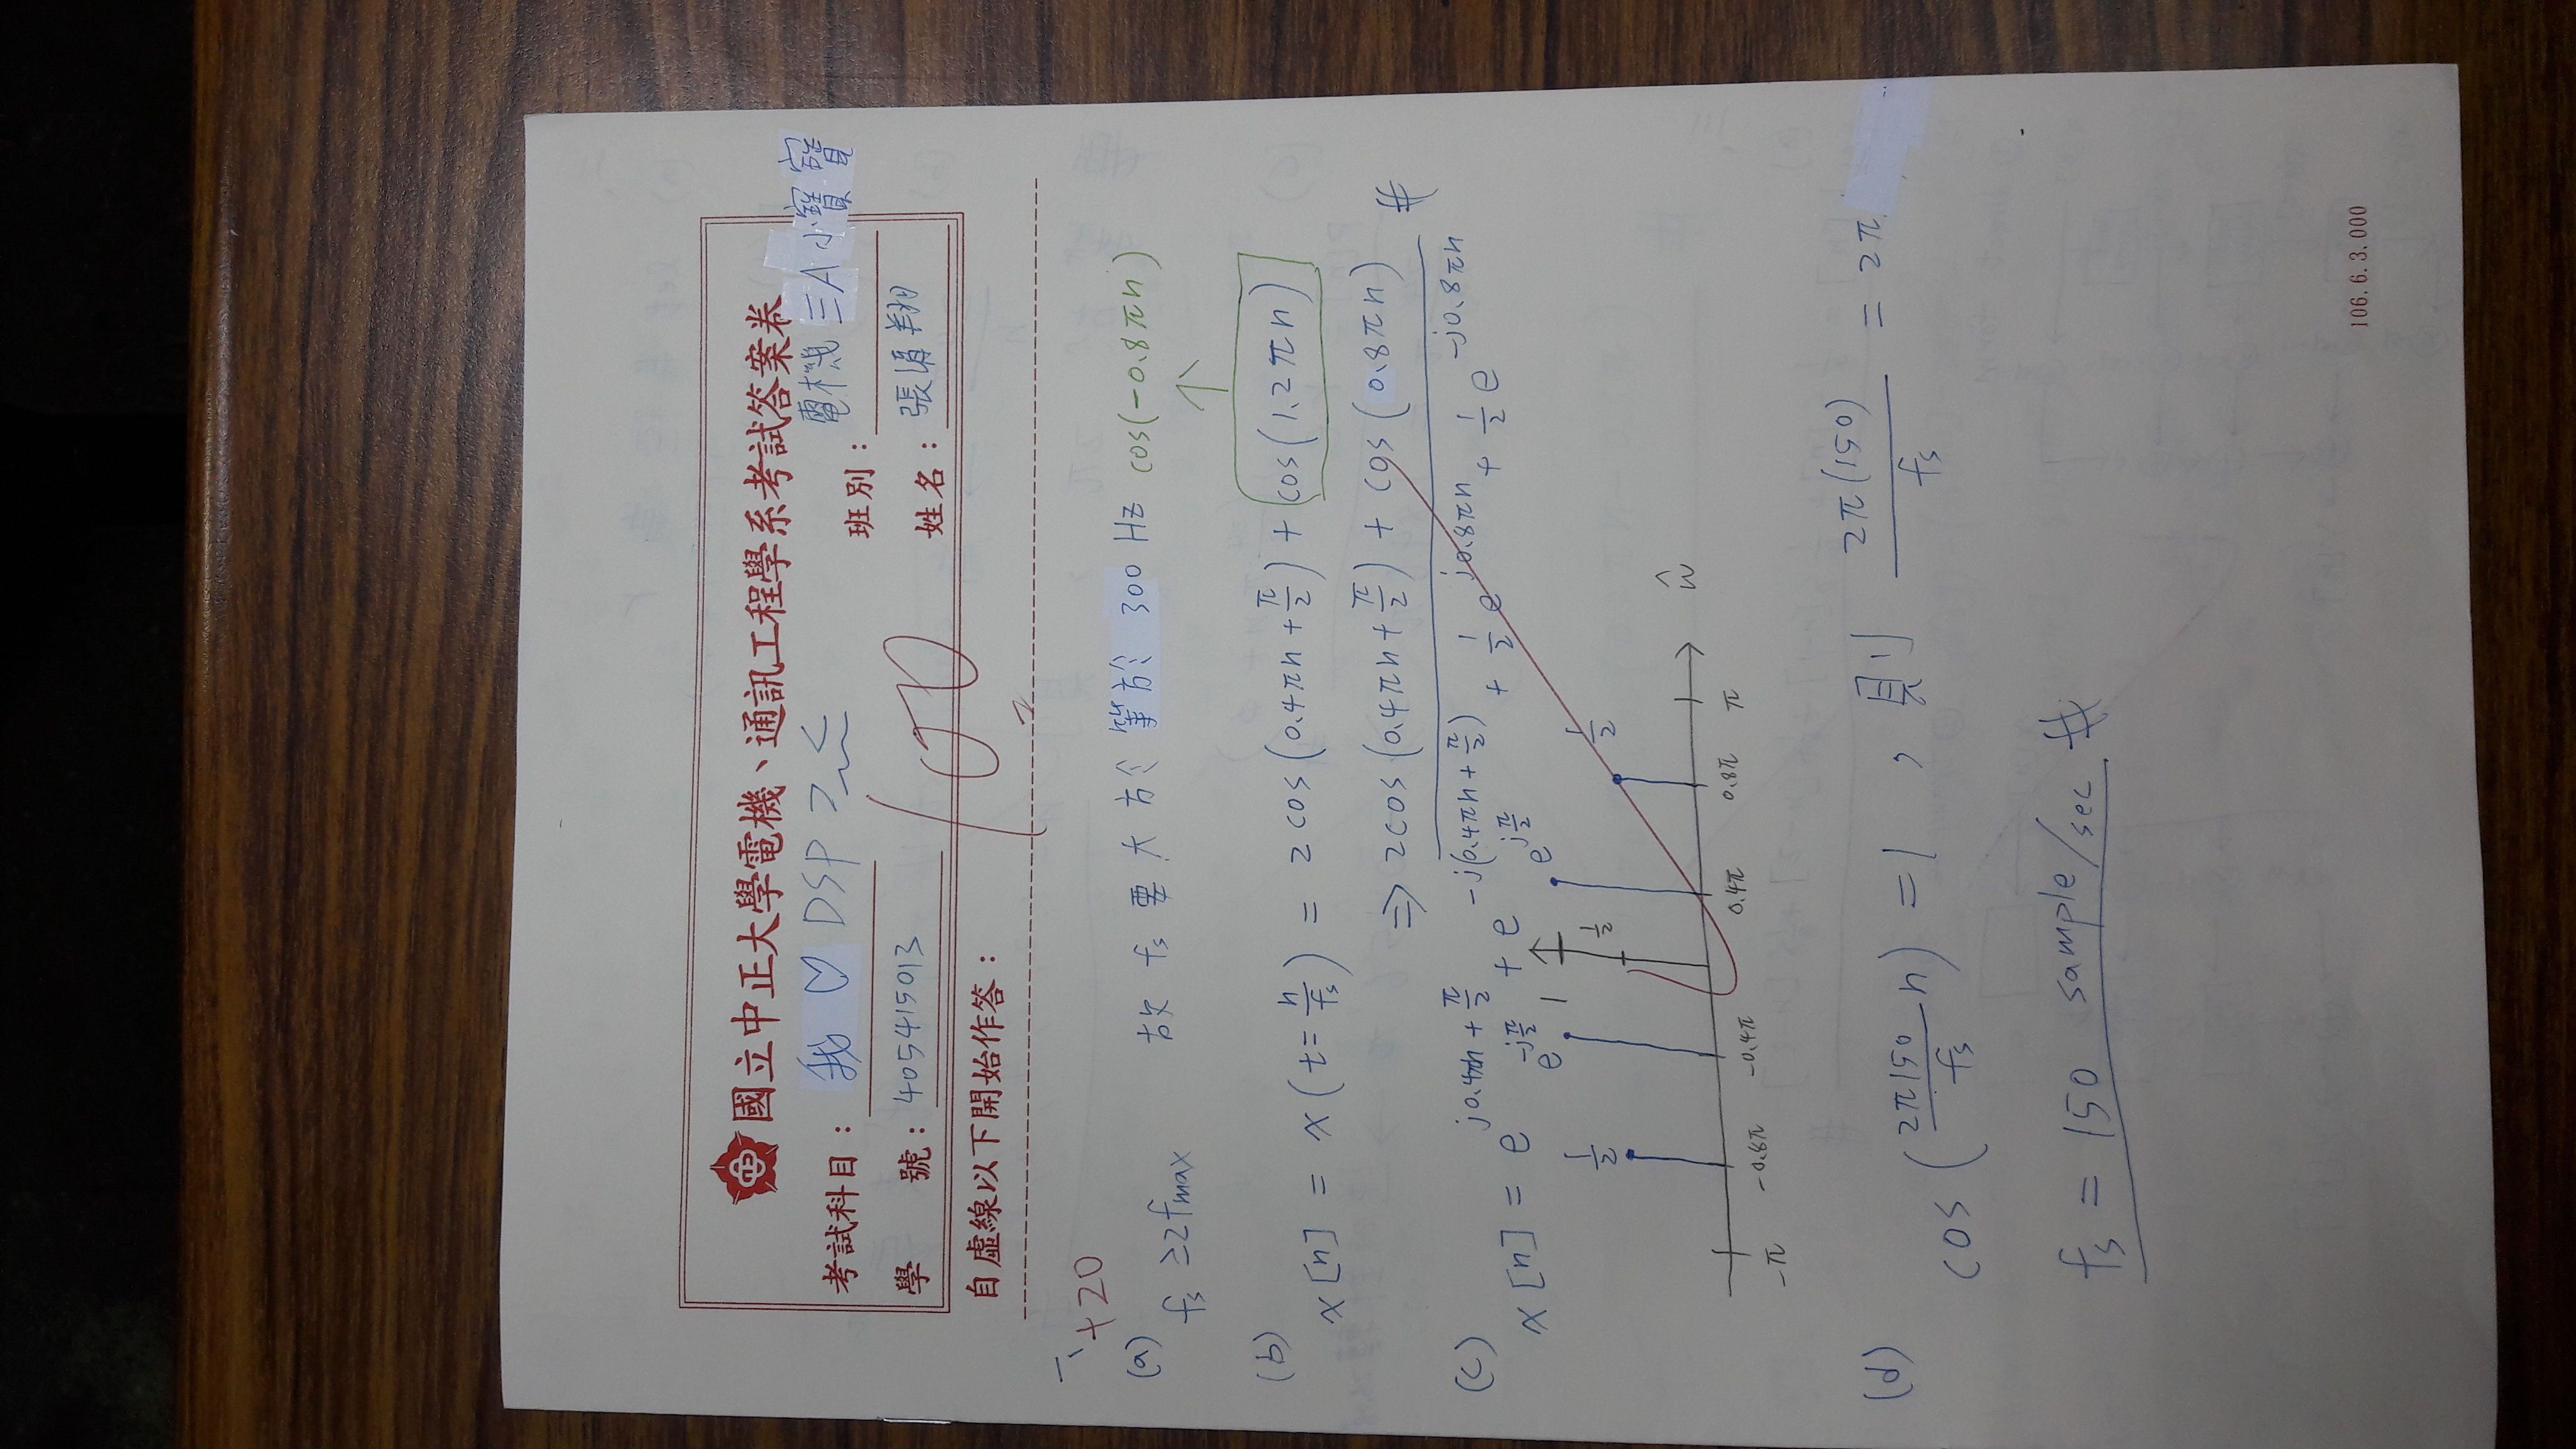 國立中正大學電機、通訊工程學系考試答案卷
考試科目：我 ♡ DSP >﹏<
班別：電機三A小寶寶
學 號：405415013
姓名：張 翔
100
自虛線以下開始作答：
一、 +20
(a) fs ≥ 2fmax 故 fs 要大於等於 300 Hz
cos(-0.8πn)
↑
(b) x[n] = x(t = n/fs) = 2cos(0.4πn + π/2) + cos(1.2πn)
⇒ 2cos(0.4πn + π/2) + cos(0.8πn) #
(c) x[n] = e^(j0.4πn + π/2) + e^(-j(0.4πn + π/2)) + 1/2 e^(j0.8πn) + 1/2 e^(-j0.8πn)
1/2 e^(-jπ/2) 1 1/2 e^(jπ/2) 1/2
-π -0.8π -0.4π 0.4π 0.8π π ŵ
(d) cos(2π150/fs n) = 1 , 則 2π(150)/fs = 2π
fs = 150 sample/sec #
106.6.3.000